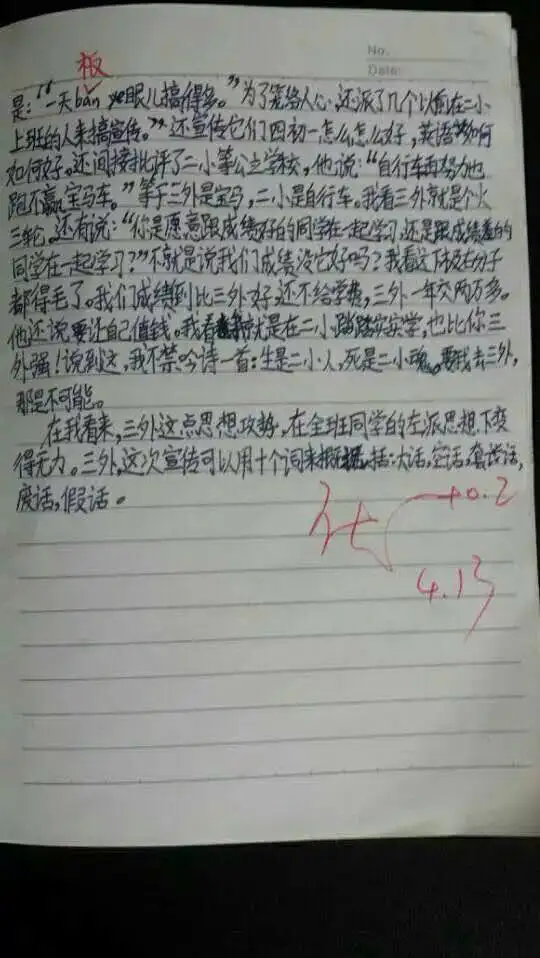 No.
Date:
板
是：“一天bǎn 眼儿搞得多。”为了笼络人心，还派了几个以前在二小
上班的人来搞宣传。”还宣传它们四初一怎么怎么好，英语如何
如何好。还间接批评了二小等公立学校，他说：“自行车再努力也
跑不赢宝马车。”等于三外是宝马，二小是自行车。我看三外就是个火
三轮。还有说：“你是愿意跟成绩好的同学在一起学习，还是跟成绩差的
同学在一起学习？”不就是说我们成绩没它好吗？我看这下右分子
都得毛了。我们成绩到比三外好，还不给学费，三外一年交两万多。
他还说要让自己值钱。我看就是在二小踏踏实实学，也比你三
外强！说到这，我不禁吟诗一首：生是二小人，死是二小魂。要我去三外，
那是不可能。
在我看来，三外这点思想攻势，在全班同学的左派思想下变
得无力。三外，这次宣传可以用十个词来概括：大话，空话，套话，
废话，假话。
+0.2
4.13